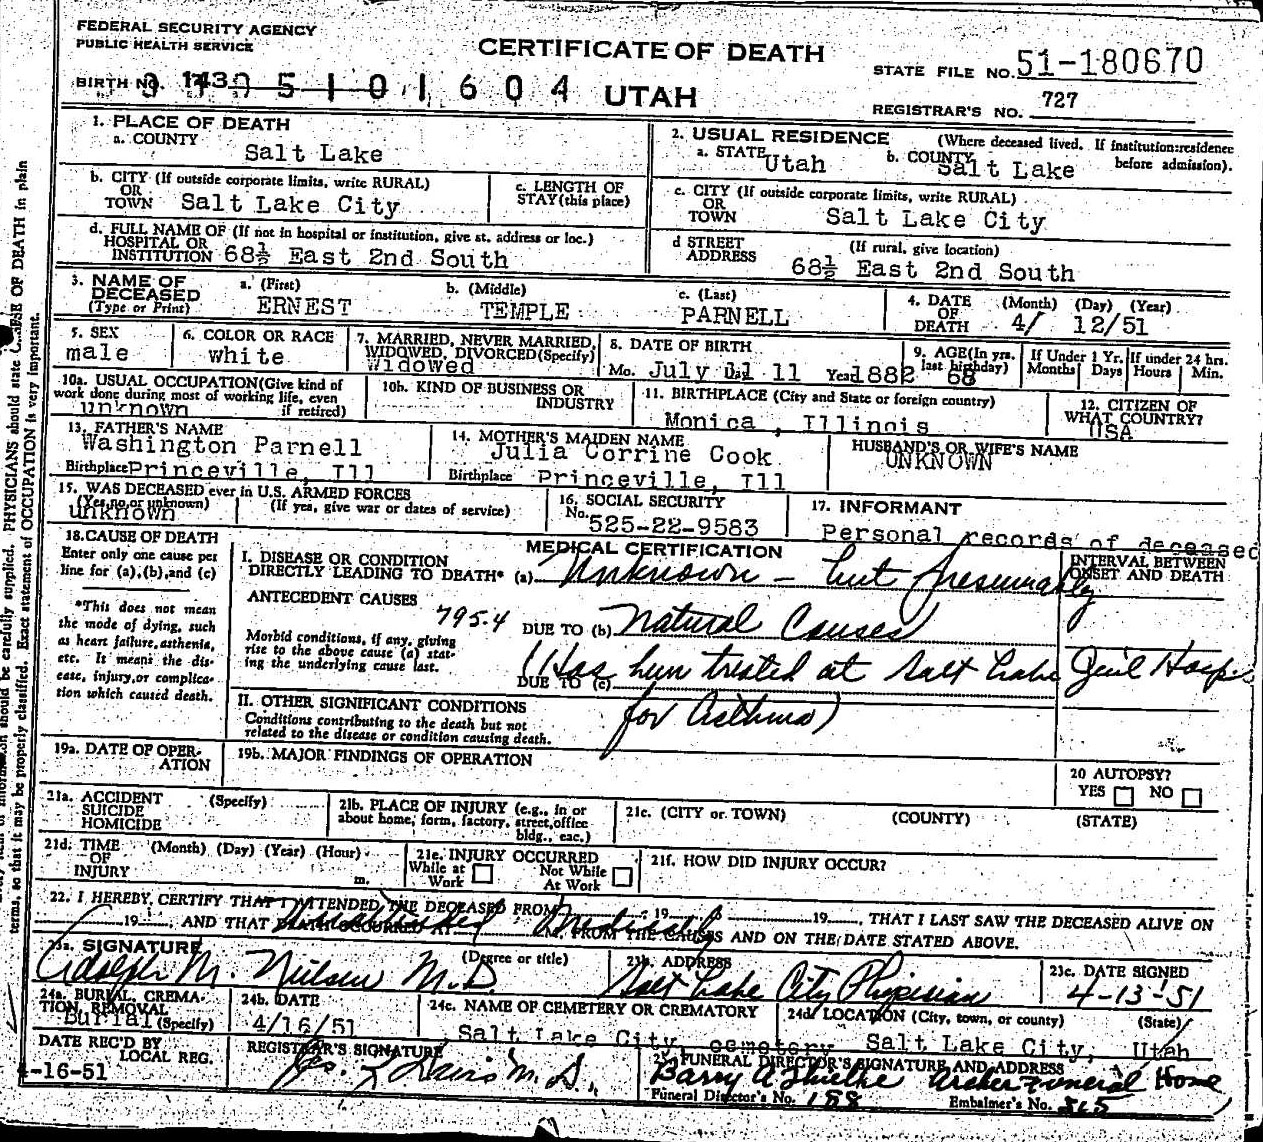 FEDERAL SECURITY AGENCY
PUBLIC HEALTH SERVICE
CERTIFICATE OF DEATH
STATE FILE NO. 51-180670
BIRTH NO. 143 5101604 UTAH
REGISTRAR'S NO. 727
1. PLACE OF DEATH
a. COUNTY
Salt Lake
2. USUAL RESIDENCE (Where deceased lived. If institution:residence before admission).
a. STATE Utah b. COUNTY Salt Lake
b. CITY (If outside corporate limits, write RURAL)
OR
TOWN Salt Lake City
c. LENGTH OF
STAY(this place)
c. CITY (If outside corporate limits, write RURAL)
OR
TOWN Salt Lake City
d. FULL NAME OF (If not in hospital or institution, give st. address or loc.)
HOSPITAL OR
INSTITUTION 68½ East 2nd South
d STREET (If rural, give location)
ADDRESS 68½ East 2nd South
3. NAME OF
DECEASED
(Type or Print)
a. (First) b. (Middle) c. (Last)
ERNEST TEMPLE PARNELL
4. DATE (Month) (Day) (Year)
OF
DEATH 4/ 12/51
5. SEX
male
6. COLOR OR RACE
white
7. MARRIED, NEVER MARRIED,
WIDOWED, DIVORCED(Specify)
Widowed
8. DATE OF BIRTH
Mo. July 11 Year 1882
9. AGE(In yrs.
last birthday)
68
If Under 1 Yr.
Months Days
If under 24 hrs.
Hours Min.
10a. USUAL OCCUPATION(Give kind of
work done during most of working life, even
if retired)
unknown
10b. KIND OF BUSINESS OR
INDUSTRY
11. BIRTHPLACE (City and State or foreign country)
Monica, Illinois
12. CITIZEN OF
WHAT COUNTRY?
USA
13. FATHER'S NAME
Washington Parnell
Birthplace Princeville, Ill
14. MOTHER'S MAIDEN NAME
Julia Corrine Cook
Birthplace Princeville, Ill
HUSBAND'S OR WIFE'S NAME
UNKNOWN
15. WAS DECEASED ever in U.S. ARMED FORCES
(Yes, no or unknown) (If yes, give war or dates of service)
unknown
16. SOCIAL SECURITY
No. 525-22-9583
17. INFORMANT
Personal records of deceased
18. CAUSE OF DEATH
Enter only one cause per
line for (a),(b),and (c)
*This does not mean
the mode of dying, such
as heart failure, asthenia,
etc. It means the dis-
ease, injury, or complica-
tion which caused death.
MEDICAL CERTIFICATION
INTERVAL BETWEEN
ONSET AND DEATH
I. DISEASE OR CONDITION
DIRECTLY LEADING TO DEATH* (a) Unknown - but presumably
ANTECEDENT CAUSES
795.4 DUE TO (b) Natural Causes
Morbid conditions, if any, giving
rise to the above cause (a) stat-
ing the underlying cause last.
DUE TO (c)
(Has been treated at Salt Lake Genl Hosp
for Asthma)
II. OTHER SIGNIFICANT CONDITIONS
Conditions contributing to the death but not
related to the disease or condition causing death.
19a. DATE OF OPER-
ATION
19b. MAJOR FINDINGS OF OPERATION
20 AUTOPSY?
YES NO
21a. ACCIDENT (Specify)
SUICIDE
HOMICIDE
21b. PLACE OF INJURY (e.g., in or
about home, form, factory, street, office
bldg., eac.)
21c. (CITY or TOWN) (COUNTY) (STATE)
21d. TIME (Month) (Day) (Year) (Hour)
OF
INJURY m.
21e. INJURY OCCURRED
While at Work Not While At Work
21f. HOW DID INJURY OCCUR?
22. I HEREBY CERTIFY THAT I ATTENDED THE DECEASED FROM 19 19 , THAT I LAST SAW THE DECEASED ALIVE ON
19 , AND THAT DEATH OCCURRED AT M. FROM THE CAUSES AND ON THE DATE STATED ABOVE.
23a. SIGNATURE (Degree or title)
Adolph M. Nielsen M.D.
23b. ADDRESS
Salt Lake City Physician
23c. DATE SIGNED
4-13-51
24a. BURIAL, CREMA-
TION, REMOVAL
Burial (Specify)
24b. DATE
4/16/51
24c. NAME OF CEMETERY OR CREMATORY
Salt Lake City, cemetery
24d. LOCATION (City, town, or county) (State)
Salt Lake City, Utah
DATE REC'D BY
LOCAL REG.
4-16-51
REGISTRAR'S SIGNATURE
M. D.
25. FUNERAL DIRECTOR'S SIGNATURE AND ADDRESS
Archer Funeral Home
Funeral Director's No. 188 Embalmer's No.
should be carefully supplied. PHYSICIANS should state CAUSE OF DEATH in plain
terms, so that it may be properly classified. Exact statement of OCCUPATION is very important.